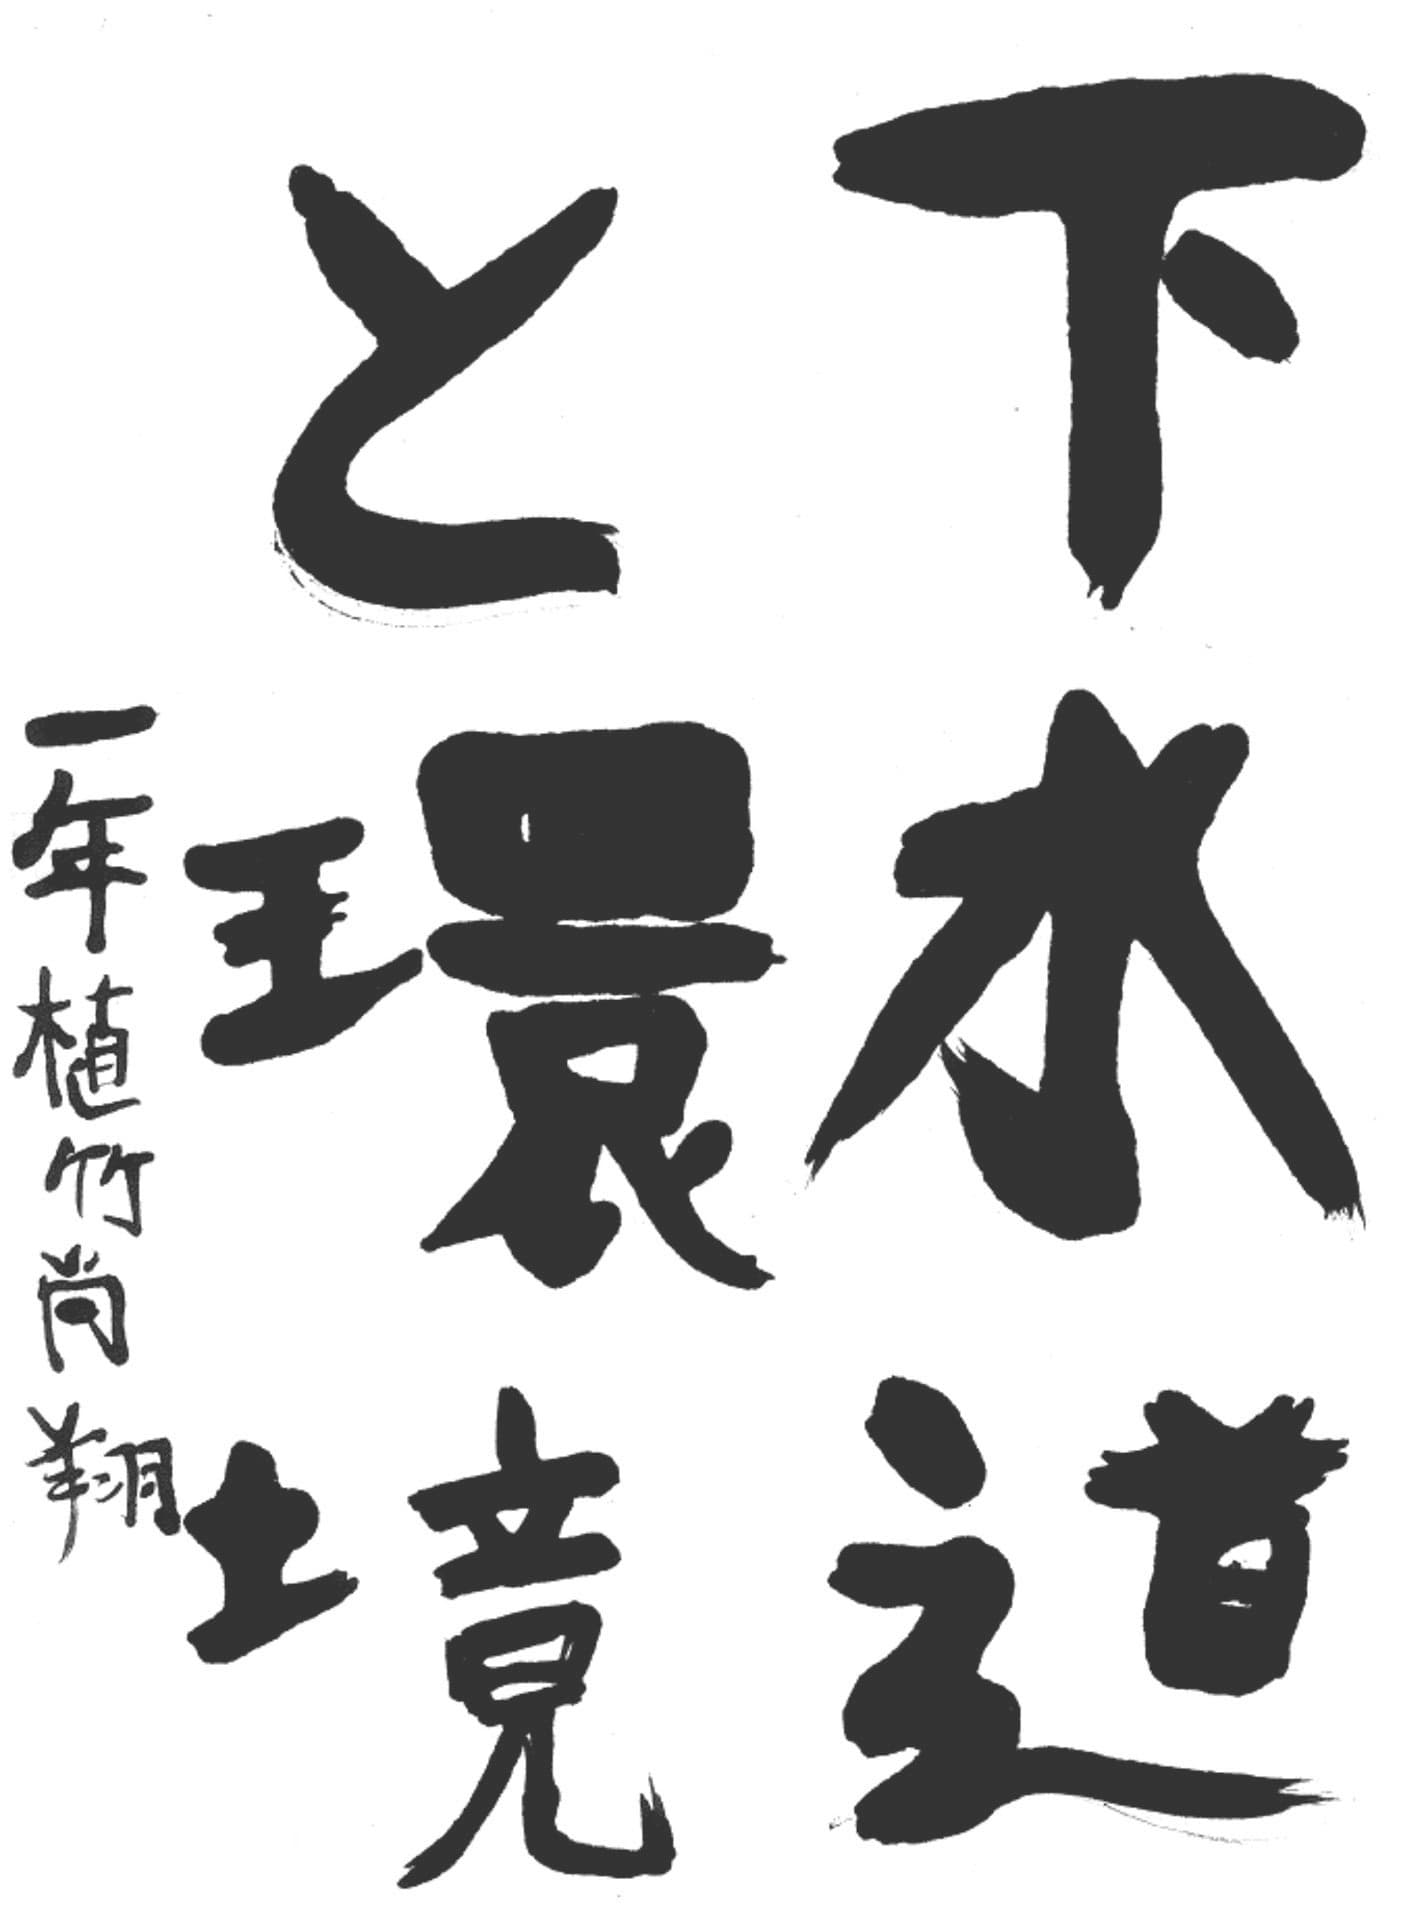 下水道
と環境
一年植竹尚翔